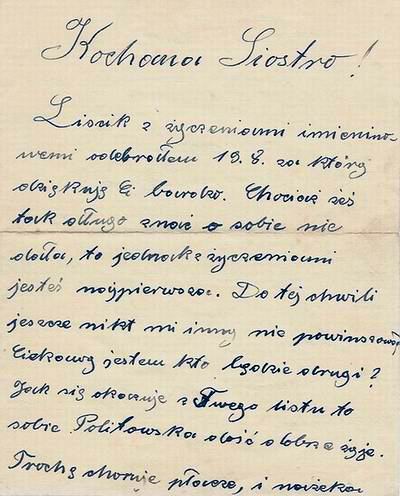 Kochana Siostro!
Liścik z życzeniami imienino-
wemi odebrałam 19.8. za który
dziękuję Ci bardzo. Chociaż żeś
tak długo znać o sobie nie
dała, to jednak z życzeniami
jesteś najpierwsza. Do tej chwili
jeszcze nikt mi inny nie powinszował
Ciekawy jestem kto będzie drugi?
Jak się okazuje z Twego listu to
sobie Politowska dość dobrze żyje.
Trochę choruje płacze, i narzeka